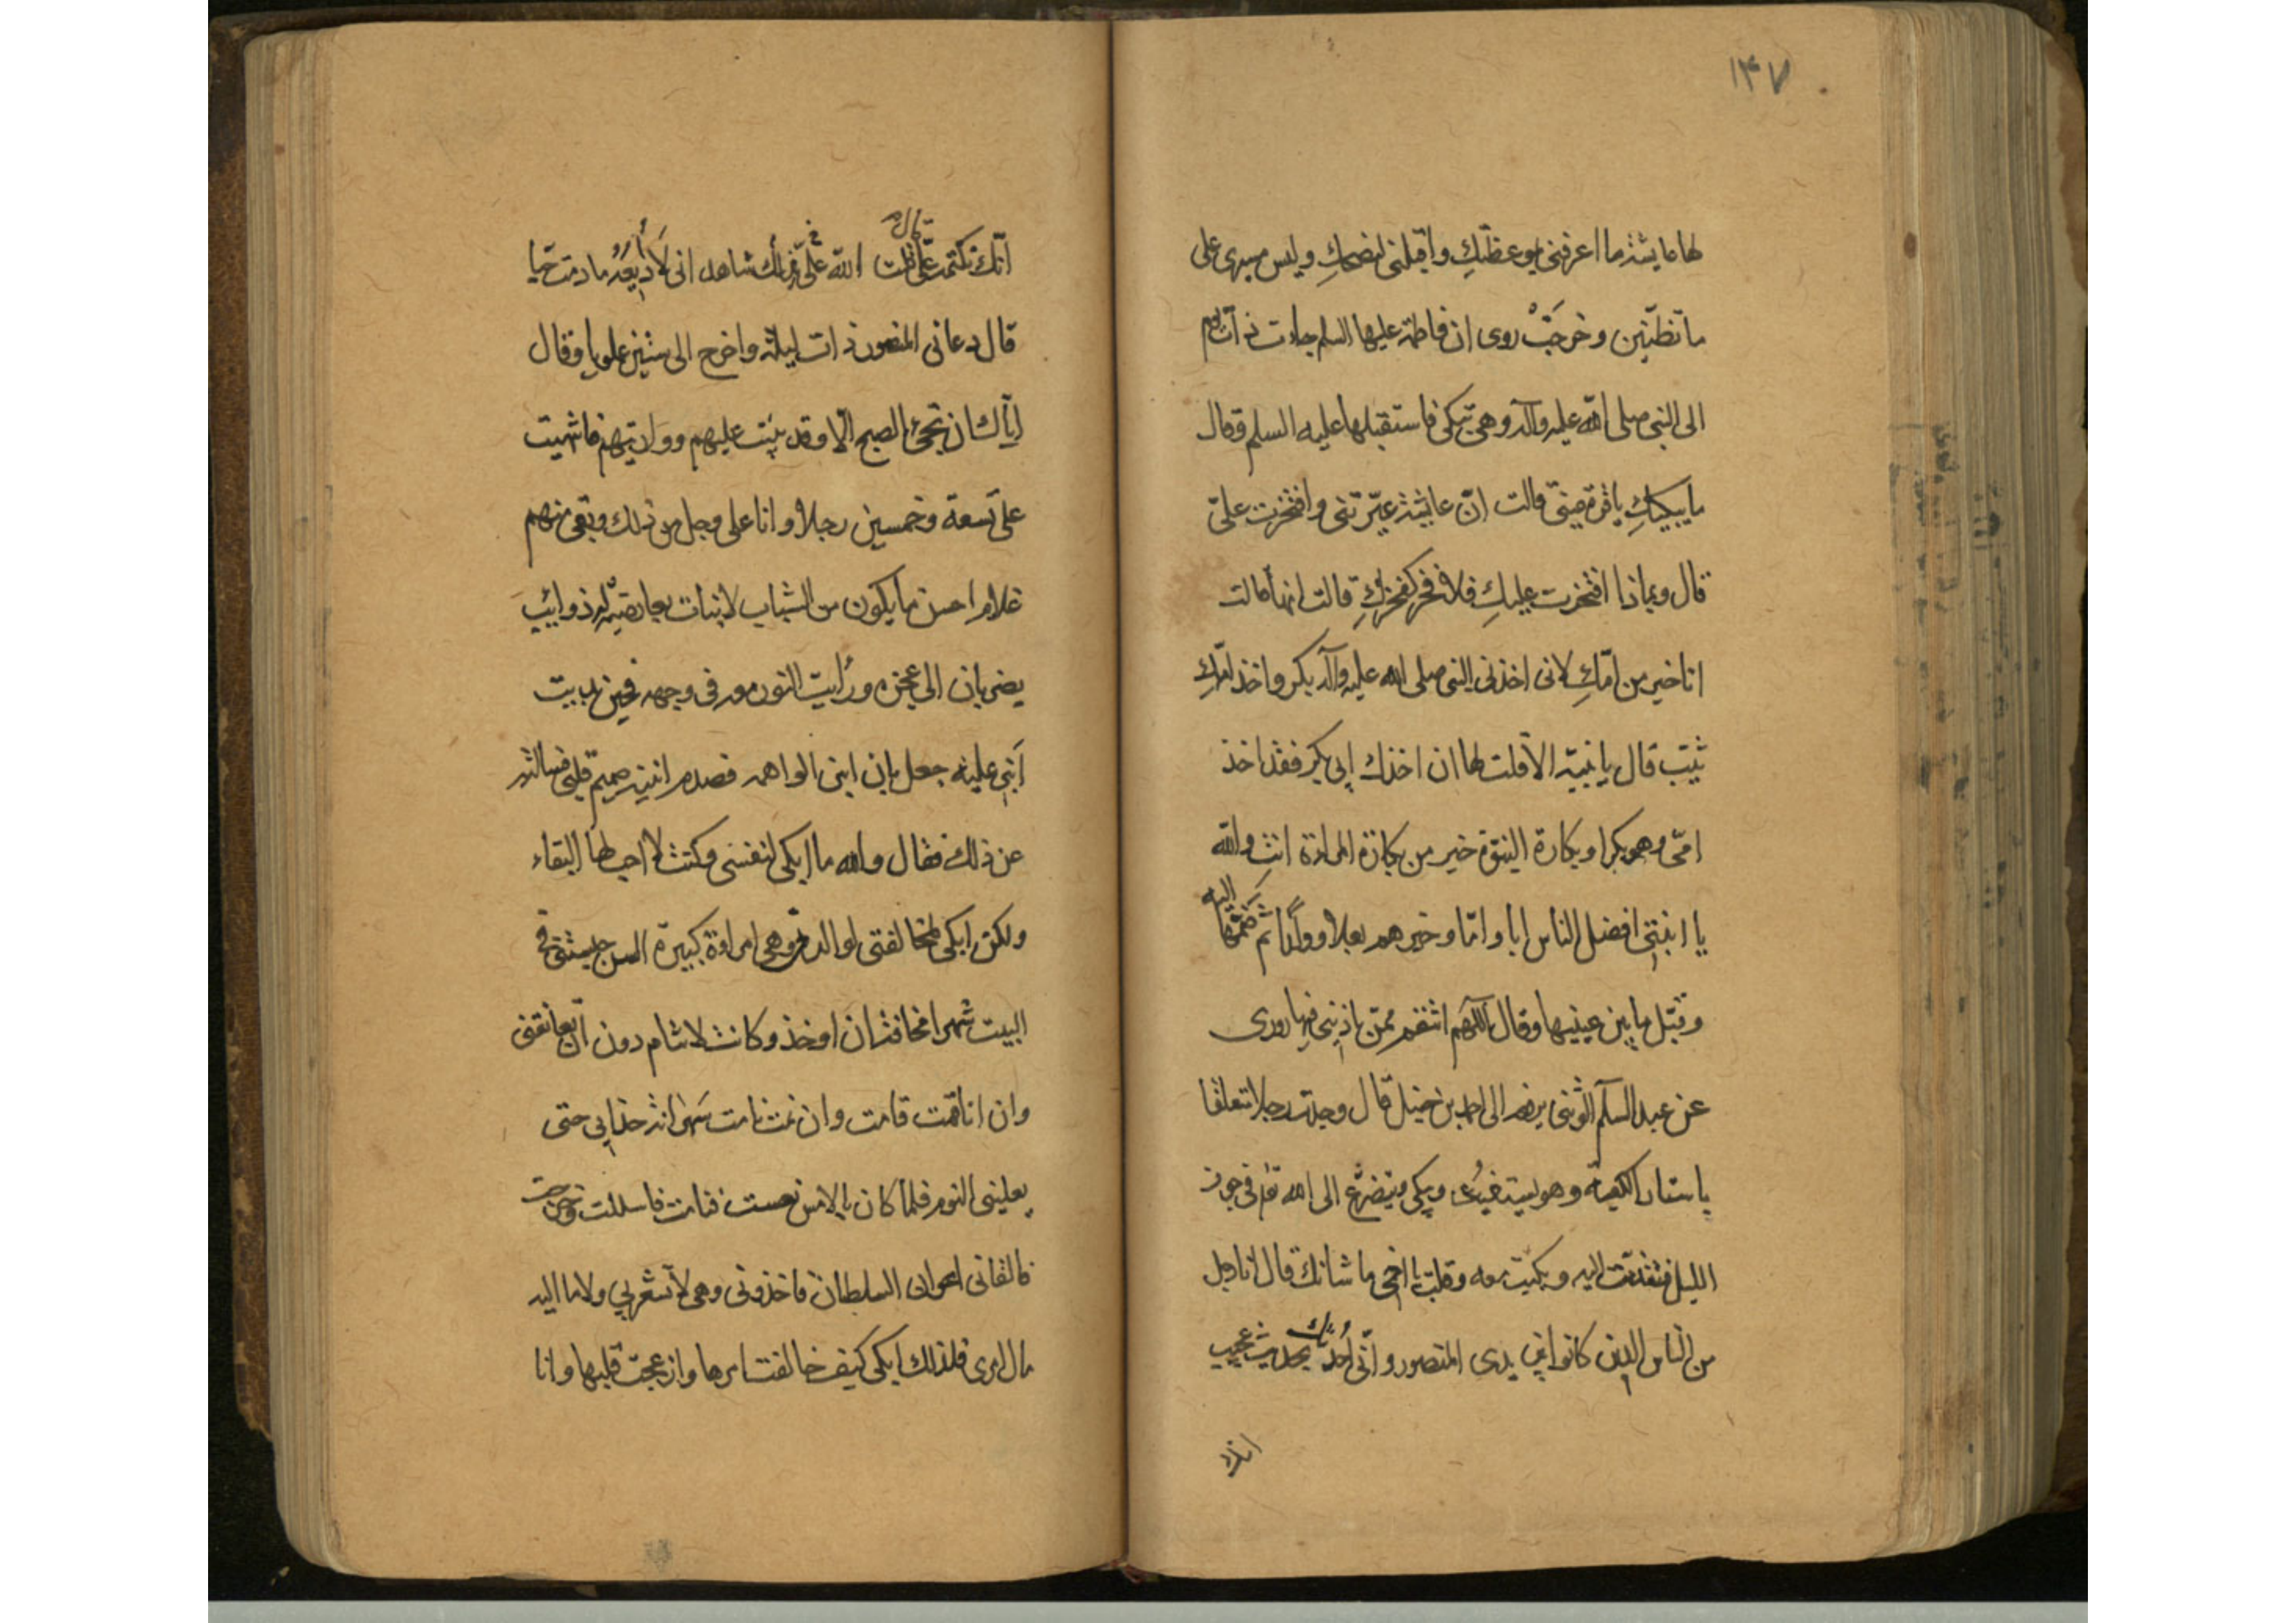 ۱۴۷
لها يا عايشة ما اعرفنى بموعظتكِ واقبلنى لنصحكِ وليس مسيرى على
ما تظنّين وخرجَتْ روى ان فاطمة عليها السلم جاءت ذات يوم
الى النبى صلى الله عليه وآله وهى تبكى فاستقبلها عليه السلم وقال
ما يبكيكِ يا قرة عينى قالت انّ عايشة عيّرتنى وافتخرت علىّ
قال وبماذا افتخرت عليكِ فلا فخر كفخركِ قالت انها قالت
انا خير من امّكِ لانى اخذنى النبى صلى الله عليه وآله بكر واخذ امّكِ
ثيّب قال يا بنيّة الا قلت لها ان اخذك ابى بكر فقد اخذ
امّى وهو بكرا وبكارة النبوّة خير من بكارة المراة انتِ والله
يا ابنتى افضل الناس ابا وامّا وخيرهم بعلا وولداً ثم ضَمَّها اليه
وقبّل ما بين عينيها وقال اللّهم انتقم ممّن ياذينى فيها روى
عن عبد السلم يرفعه الى احمد بن حنبل قال وجدت رجلا متعلقا
باستار الكعبة وهو يستغيث ويبكى ويتضرّع الى الله تعالى فى جوف
الليل فتقدّمت اليه وبكيت معه وقلت يا اخى ما شانك قال انا رجل
من الناس الذين كانوا بين يدى المنصور وانّى اُحدّثك بحديث عجيب
انك
انّك تكتمه علىّ قال قلت الله علىّ فى ذلك شاهد انى لا اُذيعَهُ ما دمت حيا
قال دعانى المنصور ذات ليلة واخرج الى ستين علويا وقال
ايّاك ان يجئ الصبح الّا وقد بنيت عليهم وواريتهم فاتيت
على تسعة وخمسين رجلا وانا على وجل من ذلك وبقى منهم
غلام احسن ما يكون من الشباب لا نبات بعارضيه له ذوايب
يضربان الى عجزه ورأيت النور فى وجهه فحين بديت
ابنى عليه جعل يان انين الوالهه فصدم انينه صميم قلبى فسالته
عن ذلك فقال والله ما ابكى لنفسى وكنت لا احب لها البقاء
ولكن ابكى لمخالفتى لوالدتى وهى امراة كبيرة السن حبستنى فى
البيت شهرا مخافة ان اوخذ وكانت لا تنام دون ان تعانقنى
وان انا قمت قامت وان نمت نامت حتى
يغلبنى النوم فلما كان بالامس نعست فنامت فانسللت وخرجت
فالتقانى اعوان السلطان فاخذونى وهى لا تشعر بى ولا ما اليه
مال امرى فلذلك ابكى كيف خالفت امرها وازعجت قلبها وانا